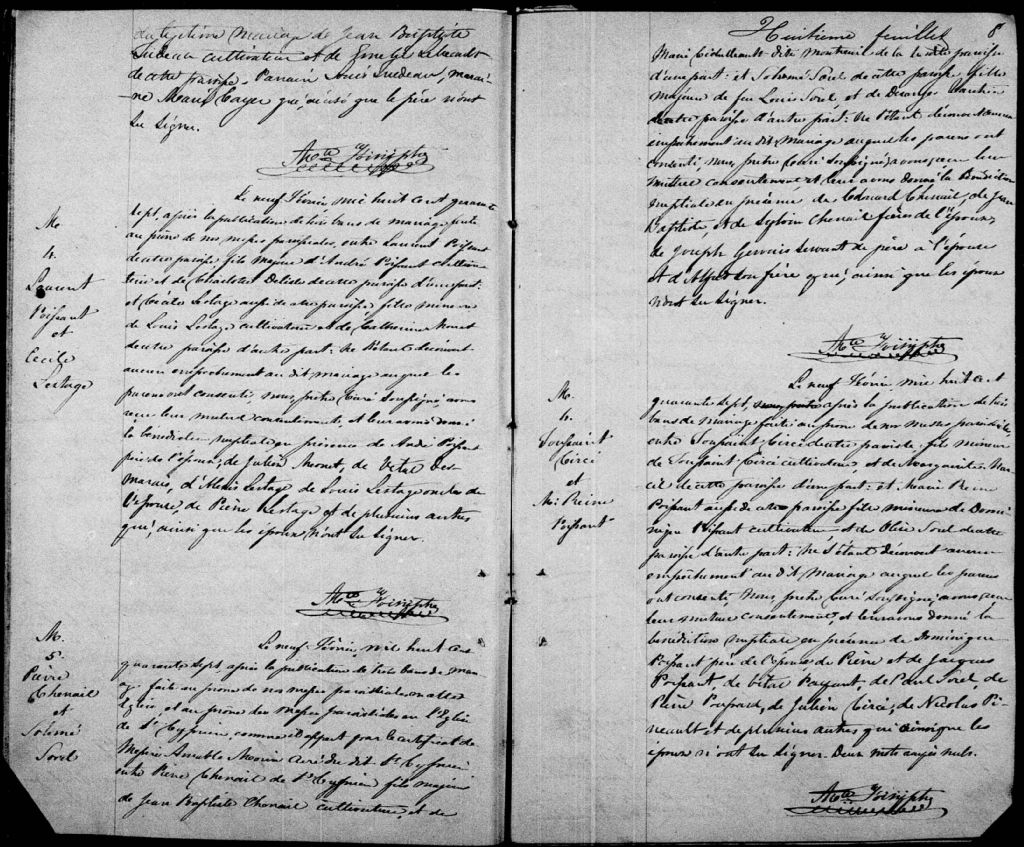 du légitime mariage de Jean Baptiste
Trudeau cultivateur et de Émelie
de cette paroisse. Parrain Louis Trudeau, marai-
ne Marie Cayer qui, ainsi que le père n'ont
su signer.
M.
4.
Laurent
Poissant
et
Cécile
Lestage
Le neuf Février mil huit cent quarante
sept, après la publication de trois bans de mariage, faite
au prône de nos messes paroissiales, entre Laurent Poissant
de cette paroisse fils majeur d'André Poissant cultiva-
teur et de Charlotte Delisle de cette paroisse d'une part:
et Cécile Lestage aussi de cette paroisse fille mineure
de Louis Lestage cultivateur et de Catherine
de cette paroisse d'autre part: Ne s'étant découvert
aucun empêchement au dit mariage auquel les
parens ont consenti, nous, prêtre Curé soussigné avons
reçu leur mutuel consentement, et leur avons donné
la bénédiction nuptiale en présence de André Poissant
père de l'époux, de Julien Monet, de Vital Des-
marais, d'Alexis Lestage de Louis Lestage oncles de
l'épouse, de Pierre Lestage et de plusieurs autres
qui, ainsi que les époux n'ont su signer.
M.
5.
Pierre
Chenail
et
Solimé
Sorel
Le neuf Février, mil huit cent
quarante sept après la publication de trois bans de maria-
ge, faite au prône de nos messes paroissiales en cette
Église, et au prône des messes paroissiales en l'Église
de St Cyprien, comme il appert par le certificat de
Messire Amable Morin curé du dit St Cyprien
entre Pierre Chenail de St Cyprien fils majeur
de Jean Baptiste Chenail cultivateur, et de
Huitième feuillet 8
Marie dite Montreuil de la dite paroisse
d'une part: et Solimé Sorel de cette paroisse fille
majeure de feu Louis Sorel, et de Desanges
de cette paroisse d'autre part: Ne s'étant découvert aucun
empêchement au dit mariage auquel les parens ont
consenti, nous, prêtre Curé soussigné, avons reçu leur
mutuel consentement, et leur avons donné la Bénédiction
nuptiale en présence de Édouard Chenail, de Jean
Baptiste, et de Chenail frères de l'époux,
de Joseph Gervais servant de père à l'épouse
et d' son frère qui, ainsi que les époux
n'ont su signer.
M.
4.
Toussaint
Circé
et
M: Reine
Poissant
Le neuf Février, mil huit cent
quarante sept, après la publication de trois
bans de mariage faite au prône de nos messes paroissiales,
entre Toussaint Circé de cette paroisse fils mineur
de Toussaint Circé cultivateur, et de Marguerite
de cette paroisse d'une part: et Marie Reine
Poissant aussi de cette paroisse fille mineure de Domi-
nique Poissant cultivateur, et de Olive Sorel de cette
paroisse d'autre part: Ne s'étant découvert aucun
empêchement au dit mariage auquel les parens
ont consenti, Nous, prêtre Curé soussigné, avons reçu
leur mutuel consentement, et leur avons donné la
bénédiction nuptiale en présence de Dominique
Poissant père de l'épouse, de Pierre et de Jacques
Poissant, de Vital Payant, de Paul Sorel, de
Pierre Poupard, de Julien Circé, de Nicolas Pi-
neault et de plusieurs autres qui ainsi que les
époux n'ont su signer. Deux mots rayés nuls.